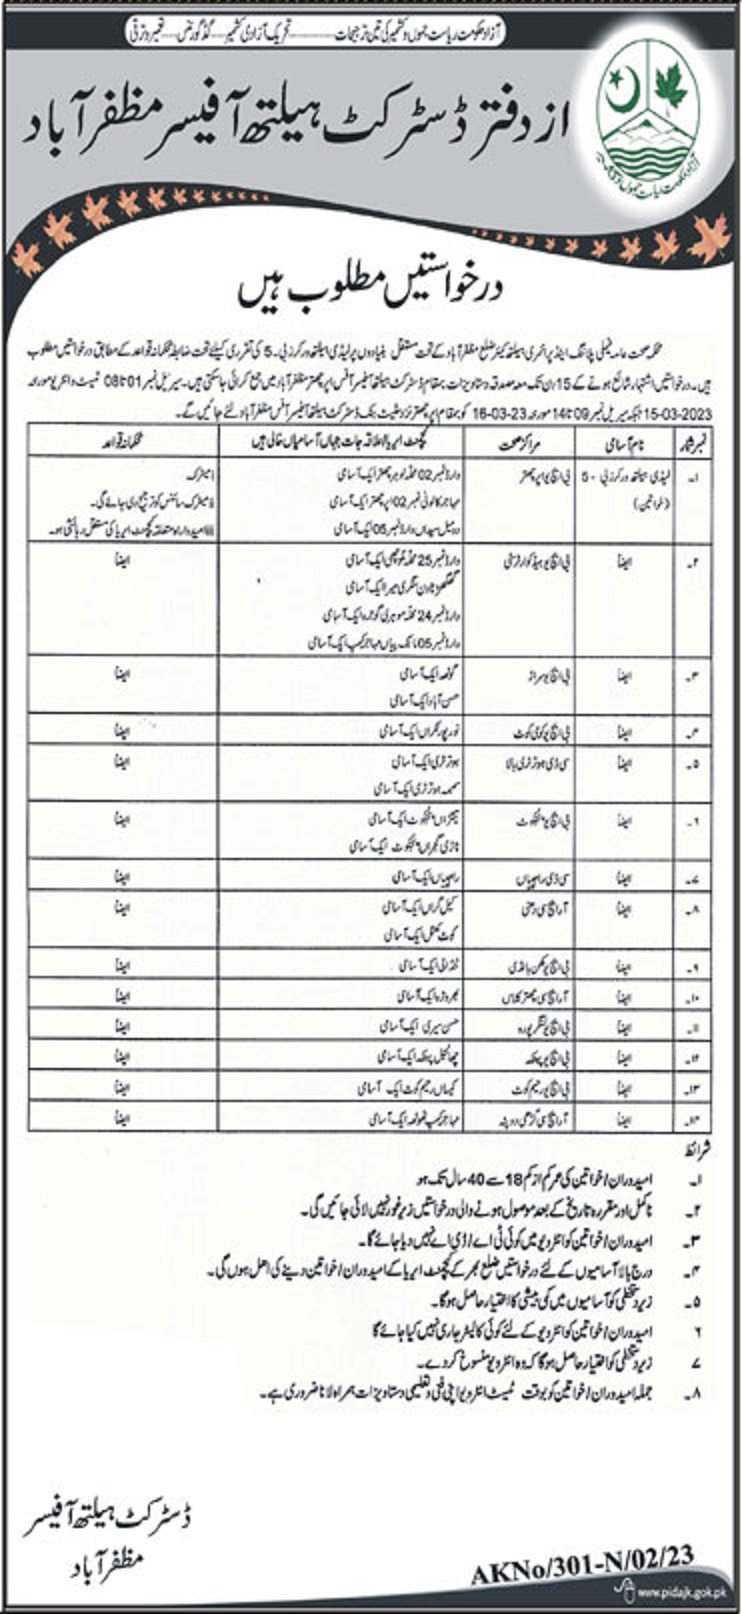 آزاد حکومت ریاست جموں و کشمیر کی تین ترجیحات ــــــــ تحریک آزادی کشمیر ــــ گڈ گورننس ــــ تعمیر و ترقی
از دفتر ڈسٹرکٹ ہیلتھ آفیسر مظفر آباد
درخواستیں مطلوب ہیں
محکمہ صحت عامہ فیملی پلاننگ اینڈ پرائمری ہیلتھ کیئر ضلع مظفر آباد کے تحت مستقل بنیادوں پر لیڈی ہیلتھ ورکرز بی۔5 کی تقرری کیلئے تحت ضابطہ محکمانہ قواعد کے مطابق درخواستیں مطلوب
ہیں۔ درخواستیں اشتہار شائع ہونے کے 15 دن تک معہ مصدقہ دستاویزات بمقام ڈسٹرکٹ ہیلتھ آفیسر آفس اپر چھتر مظفر آباد میں جمع کرائی جا سکتی ہیں۔ سیریل نمبر 01 تا 08 ٹیسٹ و انٹرویو مورخہ
15-03-2023 جبکہ سیریل نمبر 09 تا 14 مورخہ 16-03-23 کو بمقام اپر چھتر نزد حبیب بنک ڈسٹرکٹ ہیلتھ آفیسر آفس مظفر آباد لئے جائیں گے۔
نمبر شمار نام آسامی مراکز صحت کیچمنٹ ایریا/علاقہ جات جہاں آسامیاں خالی ہیں محکمانہ قواعد
۱۔ لیڈی ہیلتھ ورکرز بی -5 بی ایچ یو اپر چھتر وارڈ نمبر 02 محلہ لوہر چھتر ایک آسامی i میٹرک
(خواتین) مہاجر کالونی نمبر 02 اپر چھتر ایک آسامی ii میٹرک سائنس کو ترجیح دی جائے گی۔
دومیل سیداں وارڈ نمبر 05 ایک آسامی iii امیدوار متعلقہ کیچمنٹ ایریا کی مستقل رہائشی ہو۔
۲۔ ایضاً بی ایچ یو ہیڈ کوارٹر سٹی وارڈ نمبر 25 محلہ ایک آسامی ایضاً
ایک آسامی
وارڈ نمبر 24 محلہ موہری گوجرہ ایک آسامی
وارڈ نمبر 05 مانک پیاں مہاجر کیمپ ایک آسامی
۳۔ ایضاً بی ایچ یو سراڑ گوٹھہ ایک آسامی ایضاً
حسن آباد ایک آسامی
۴۔ ایضاً بی ایچ یو کومی کوٹ نور پور نکراں ایک آسامی ایضاً
۵۔ ایضاً سی ڈی ہوتریڑی بالا ہوتریڑی ایک آسامی ایضاً
ہوتریڑی ایک آسامی
۶۔ ایضاً بی ایچ یو ایک آسامی ایضاً
ایک آسامی
۷۔ ایضاً سی ڈی راجپیاں راجپیاں ایک آسامی ایضاً
۸۔ ایضاً آر ایچ سی دھنی کیل گراں ایک آسامی ایضاً
کوٹ ایک آسامی
۹۔ ایضاً بی ایچ یو مکمن بانڈی ایک آسامی ایضاً
۱۰۔ ایضاً آر ایچ سی چھتر کلاس ایک آسامی ایضاً
۱۱۔ ایضاً بی ایچ یو لنگرپورہ حسن سیری ایک آسامی ایضاً
۱۲۔ ایضاً بی ایچ یو پہلہ ایک آسامی ایضاً
۱۳۔ ایضاً بی ایچ یو رحیم کوٹ کہیاں رحیم کوٹ ایک آسامی ایضاً
۱۴۔ ایضاً آر ایچ سی گڑھی دوپٹہ مہاجر کیمپ ٹھوٹھہ ایک آسامی ایضاً
شرائط
۱۔ امیدوران/خواتین کی عمر کم از کم 18 سے 40 سال تک ہو
۲۔ نامکمل اور مقررہ تاریخ کے بعد موصول ہونے والی درخواستیں زیر غور نہیں لائی جائیں گی۔
۳۔ امیدوران/خواتین کو انٹرویو میں کوئی ٹی اے/ڈی اے نہیں دیا جائے گا۔
۴۔ درج بالا آسامیوں کے لئے درخواستیں ضلع بھر کے کیچمنٹ ایریا کے امیدوران/خواتین دینے کی اہل ہوں گی۔
۵۔ زیر دستخطی کو آسامیوں میں کمی بیشی کا اختیار حاصل ہو گا۔
۶ امیدوران/خواتین کو انٹرویو کے لئے کوئی کال لیٹر جاری نہیں کیا جائے گا
۷ زیر دستخطی کو اختیار حاصل ہو گا کہ وہ انٹرویو منسوخ کر دے۔
۸۔ جملہ امیدوران/خواتین کو بوقت ٹیسٹ انٹرویو اپنی فنی و تعلیمی دستاویزات ہمراہ لانا ضروری ہے۔
ڈسٹرکٹ ہیلتھ آفیسر
مظفر آباد
AKNo/301-N/02/23
www.pidajk.gok.pk